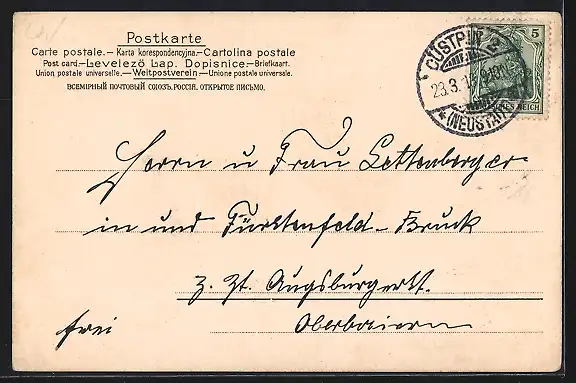 Postkarte
Carte postale.—Karta korespondencyjna.—Cartolina postale
Post card.—Levelező Lap. Dopisnice.—Briefkaart.
Union postale universelle.—Weltpostverein—Unione postale universale.
ВСЕМІРНЫЙ ПОЧТОВЫЙ СОЮЗЪ. РОССІЯ. ОТКРЫТОЕ ПИСЬМО.
5
CÜSTRIN 2
23.3.
* (NEUSTADT)
REICH
Herrn u Frau Lettenberger
in und Fürstenfeld-Bruck
z. Zt. Augsburgerst.
frei Oberbaiern